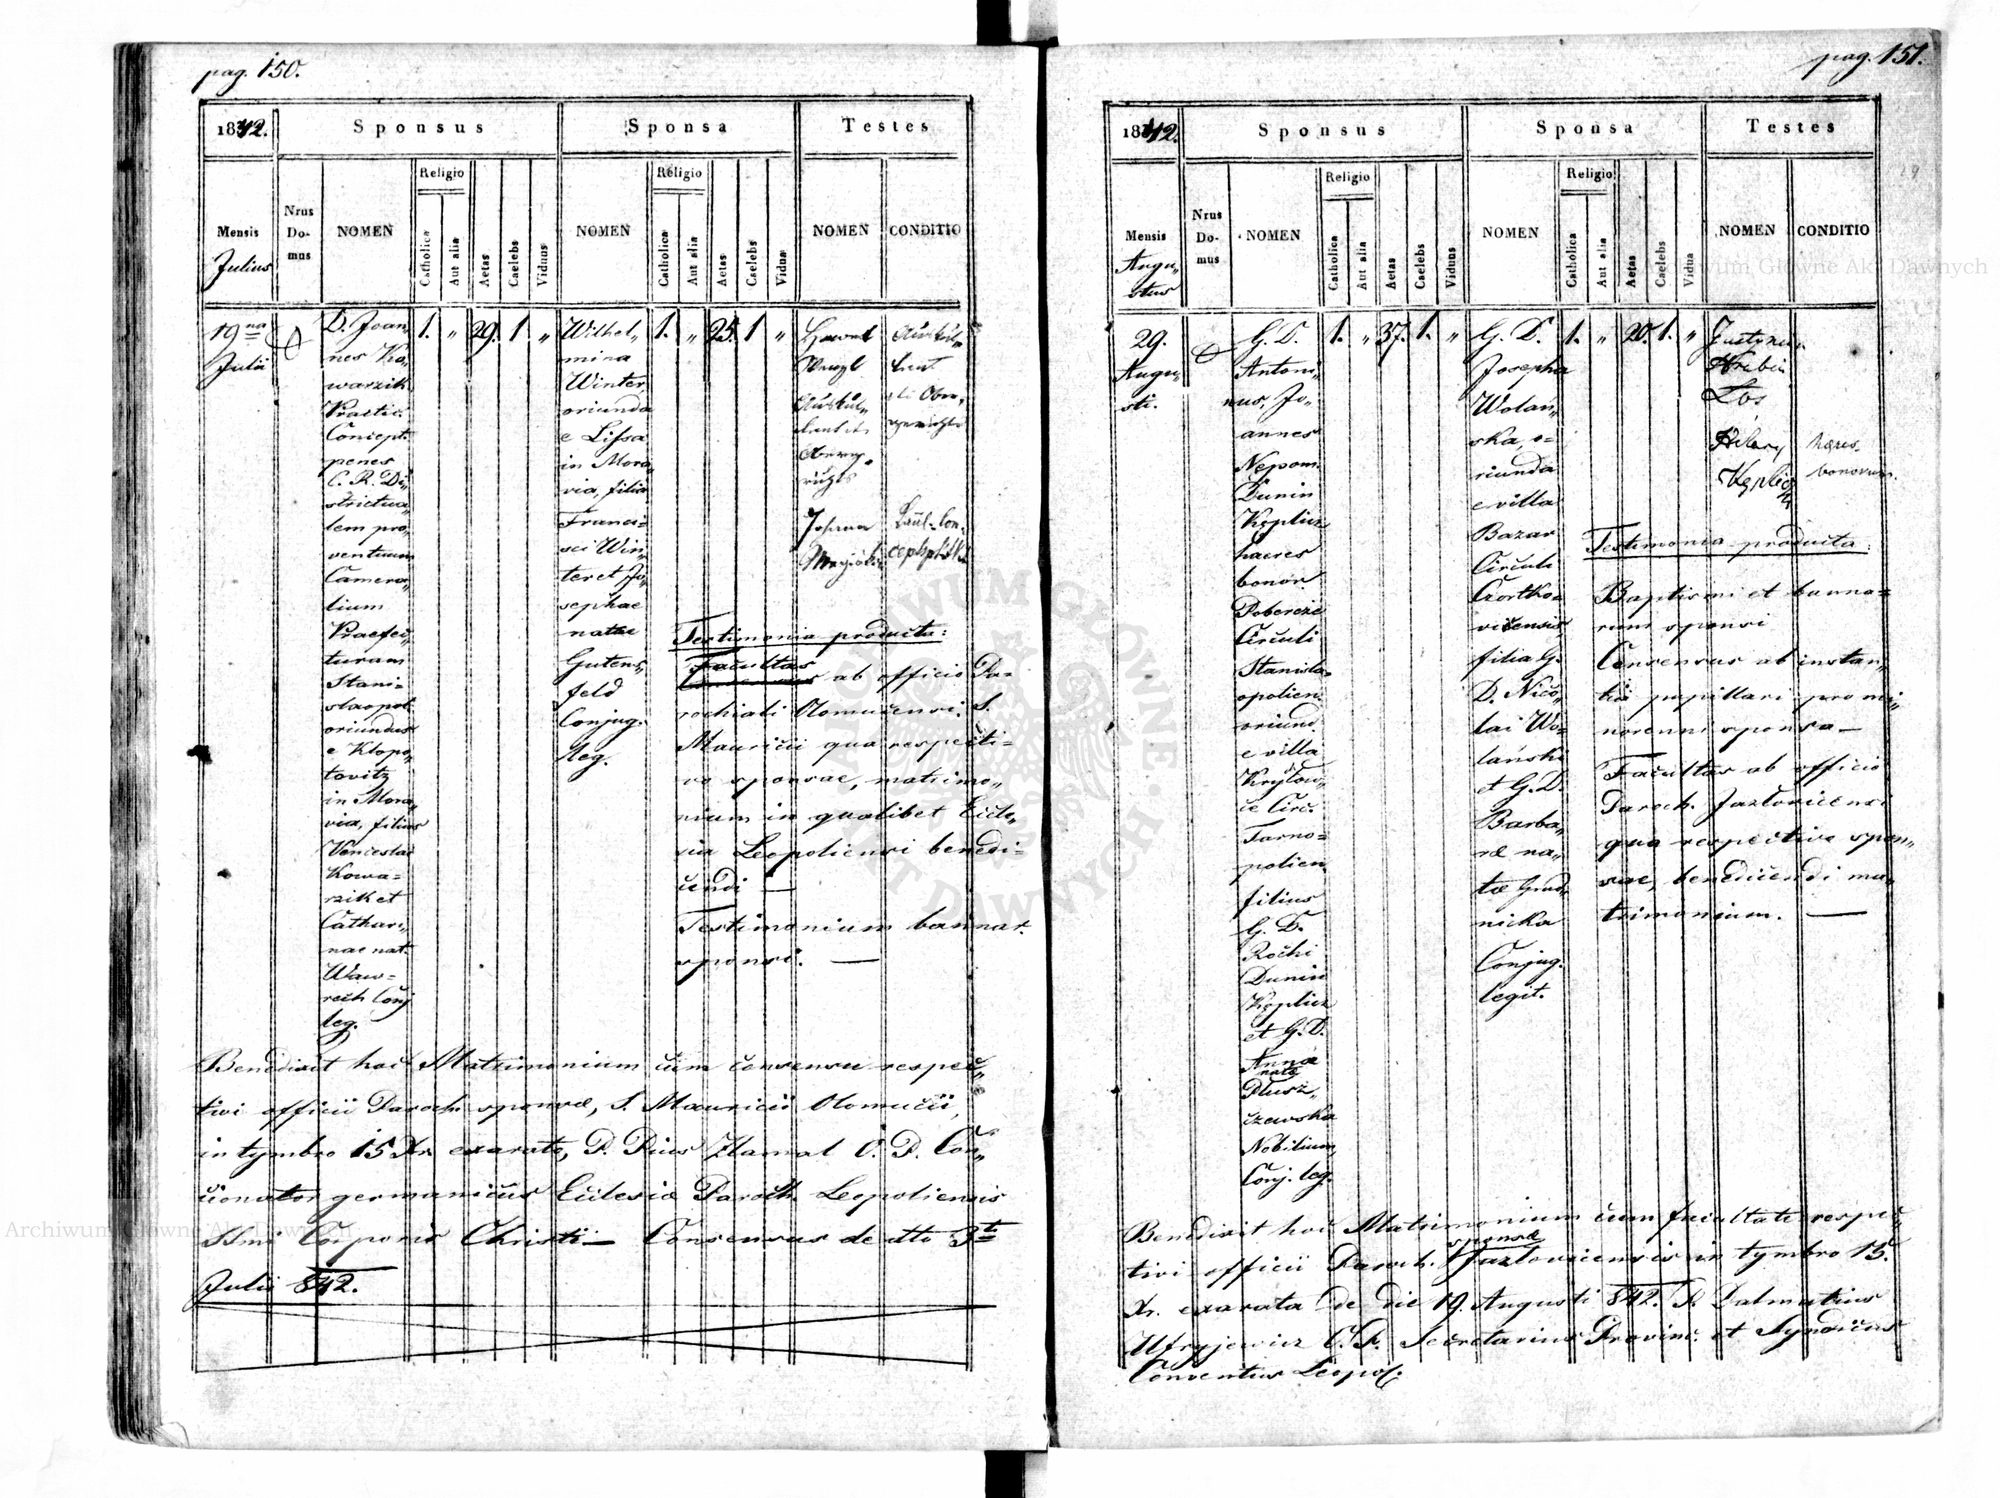 pag. 150.
1842.
Sponsus
Sponsa
Testes
Mensis
Julius
Nrus
Do-
mus
NOMEN
Religio
Catholica
Aut alia
Aetas
Caelebs
Viduus
NOMEN
Religio
Catholica
Aut alia
Aetas
Caelebs
Vidua
NOMEN
CONDITIO
19na
Julii
D. Joan„
nes Ko„
warzik
Practic.
Concept.
penes
C. R. Di„
strictua„
lem pro„
ventuum
Camera„
lium
Praefec„
turam
Stani-
slaopol.
oriundus
e Klopo„
tovitz
in Mora„
via, filius
Venceslai
Kowa-
rzik et
Cathari„
nae nat.
Waw-
rech Conj.
leg.
1.
„
29.
1
„
Wilhel„
mina
Winter
oriunda
e Lissa
in Mora„
via, filia
Franci-
sci Win„
ter et Jo„
sephae
natae
Gutens„
feld
Conjug.
leg.
1.
„
25.
1
„
Johann
Testimonia producta:
Facultas
ab officio Pa-
rochiali Olomucensi S.
Mauricii qua respecti-
vo sponsae, matrimo-
nium in qualibet Eccle„
sia Leopoliensi benedi-
cendi —
Testimonium bannar.
sponsi. —
Benedixit hoc Matrimonium cum consensu respec„
tivi officii Paroch. sponsæ, S. Mauricii Olomucii,
in tymbro 15 Xr. exarato, P. Pius Hamal O. P. Con„
cionator germanicus Ecclesiæ Paroch. Leopoliensis
SSmi Corporis Christi — Consensus de dtto 3ta
Julii 842.
pag. 151.
1842.
Sponsus
Sponsa
Testes
Mensis
Augu„
stus
Nrus
Do-
mus
NOMEN
Religio
Catholica
Aut alia
Aetas
Caelebs
Viduus
NOMEN
Religio
Catholica
Aut alia
Aetas
Caelebs
Vidua
NOMEN
CONDITIO
29.
Augu„
sti.
G. D.
Antoni„
nus, Jo„
annes
Nepom.
Dunin
Kęplicz
haeres
bonor.
Pobereże
Circuli
Stanisla-
opolien.
oriund.
e villa
Kryłow„
ce Circ.
Tarno-
polien.
filius
G. D.
Rochi
Dunin
Kęplicz
et G. D.
Annæ
natæ
Płusz„
czewska
Nobilium,
Conj. leg.
1.
„
37.
1.
„
G. D.
Josepha
Wolań„
ska, o-
riunda
e villa
Bazar
Circuli
Czortko-
viensis,
filia G.
D. Nico„
lai Wo„
lański
et G. D.
Barba„
ræ na„
tæ Grud„
nicka
Conjug.
legit.
1.
„
20.
1.
„
Hilary
Kęplicz
hæres
bonorum.
Testimonia producta:
Baptismi et banno-
rum sponsi
Consensus ab instan„
tia pupillari pro mi„
norenni sponsa —
Facultas ab officio
Paroch. Jazłovicensi
qua respectivo spon„
sae, benedicendi ma„
trimonium. —
Benedixit hoc Matrimonium cum facultate respec„
tivi officii Paroch. sponsæ Jazłovicensis in tymbro 15.
Xr. exarata de die 19. Augusti 842. P. Dalmatius
Ufryjewicz O. P. Secretarius Provinc. et Syndicus
Conventus Leopol.
ARCHIWUM GŁÓWNE AKT DAWNYCH
Archiwum Główne Akt Dawnych
Archiwum Główne Akt Dawnych